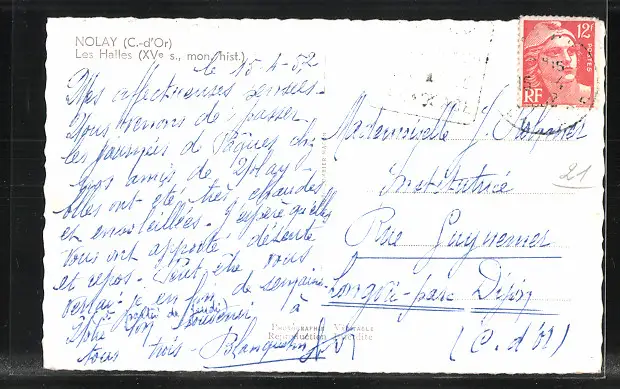 NOLAY (C.-d'Or)
Les Halles (XVe s., mon. hist.)
le 15-4-52
Mes affectueuses pensées.
Nous venons de passer
les journées de Pâques chez
nos amis de Nolay -
elles ont été très chaudes
et ensoleillées. J'espère qu'elles
vous ont apporté détente
et repos. Peut-être vous
verrai-je en fin de semaine
à partir de jeudi
Notre bon souvenir à
tous trois -
12F
POSTES
RF
Mademoiselle J.
Institutrice
Rue Guynemer
Longvic-parc Dijon
(C. d'Or)
21
PHOTOGRAPHIE VÉRITABLE
Reproduction interdite